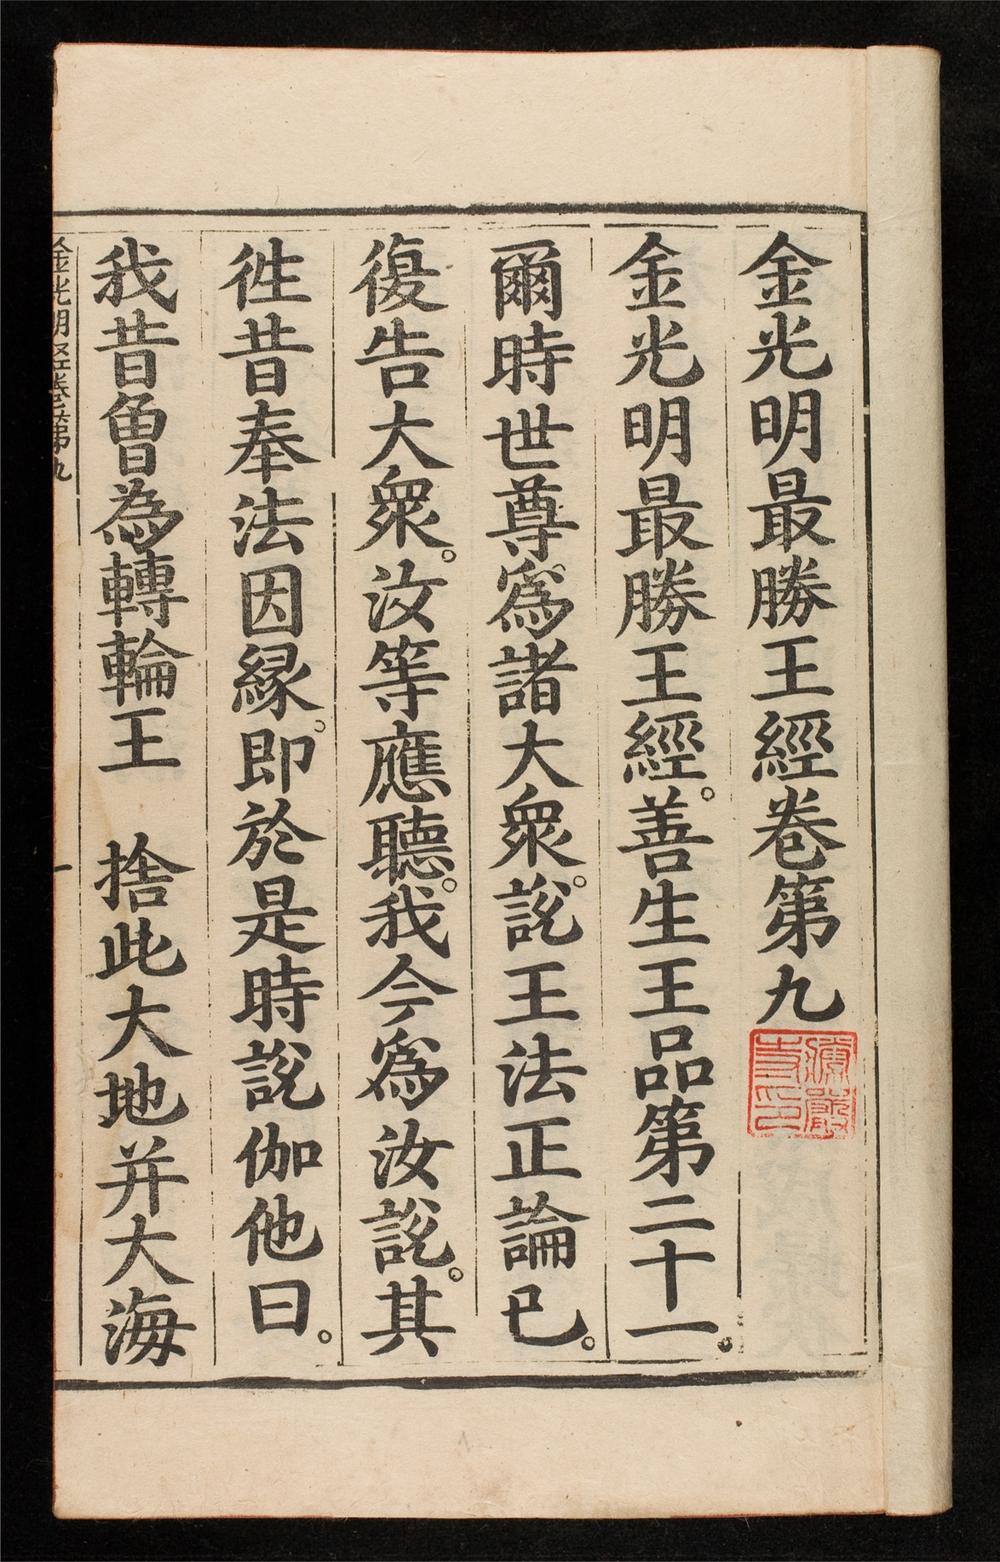 金光明最勝王經卷第九
金光明最勝王經。善生王品第二十一。
爾時世尊爲諸大衆。説王法正論已。
復告大衆。汝等應聽。我今爲汝説。其
徃昔奉法因縁。即於是時説伽他曰。
我昔曾為轉輪王　捨此大地并大海
金光明經卷第九
一